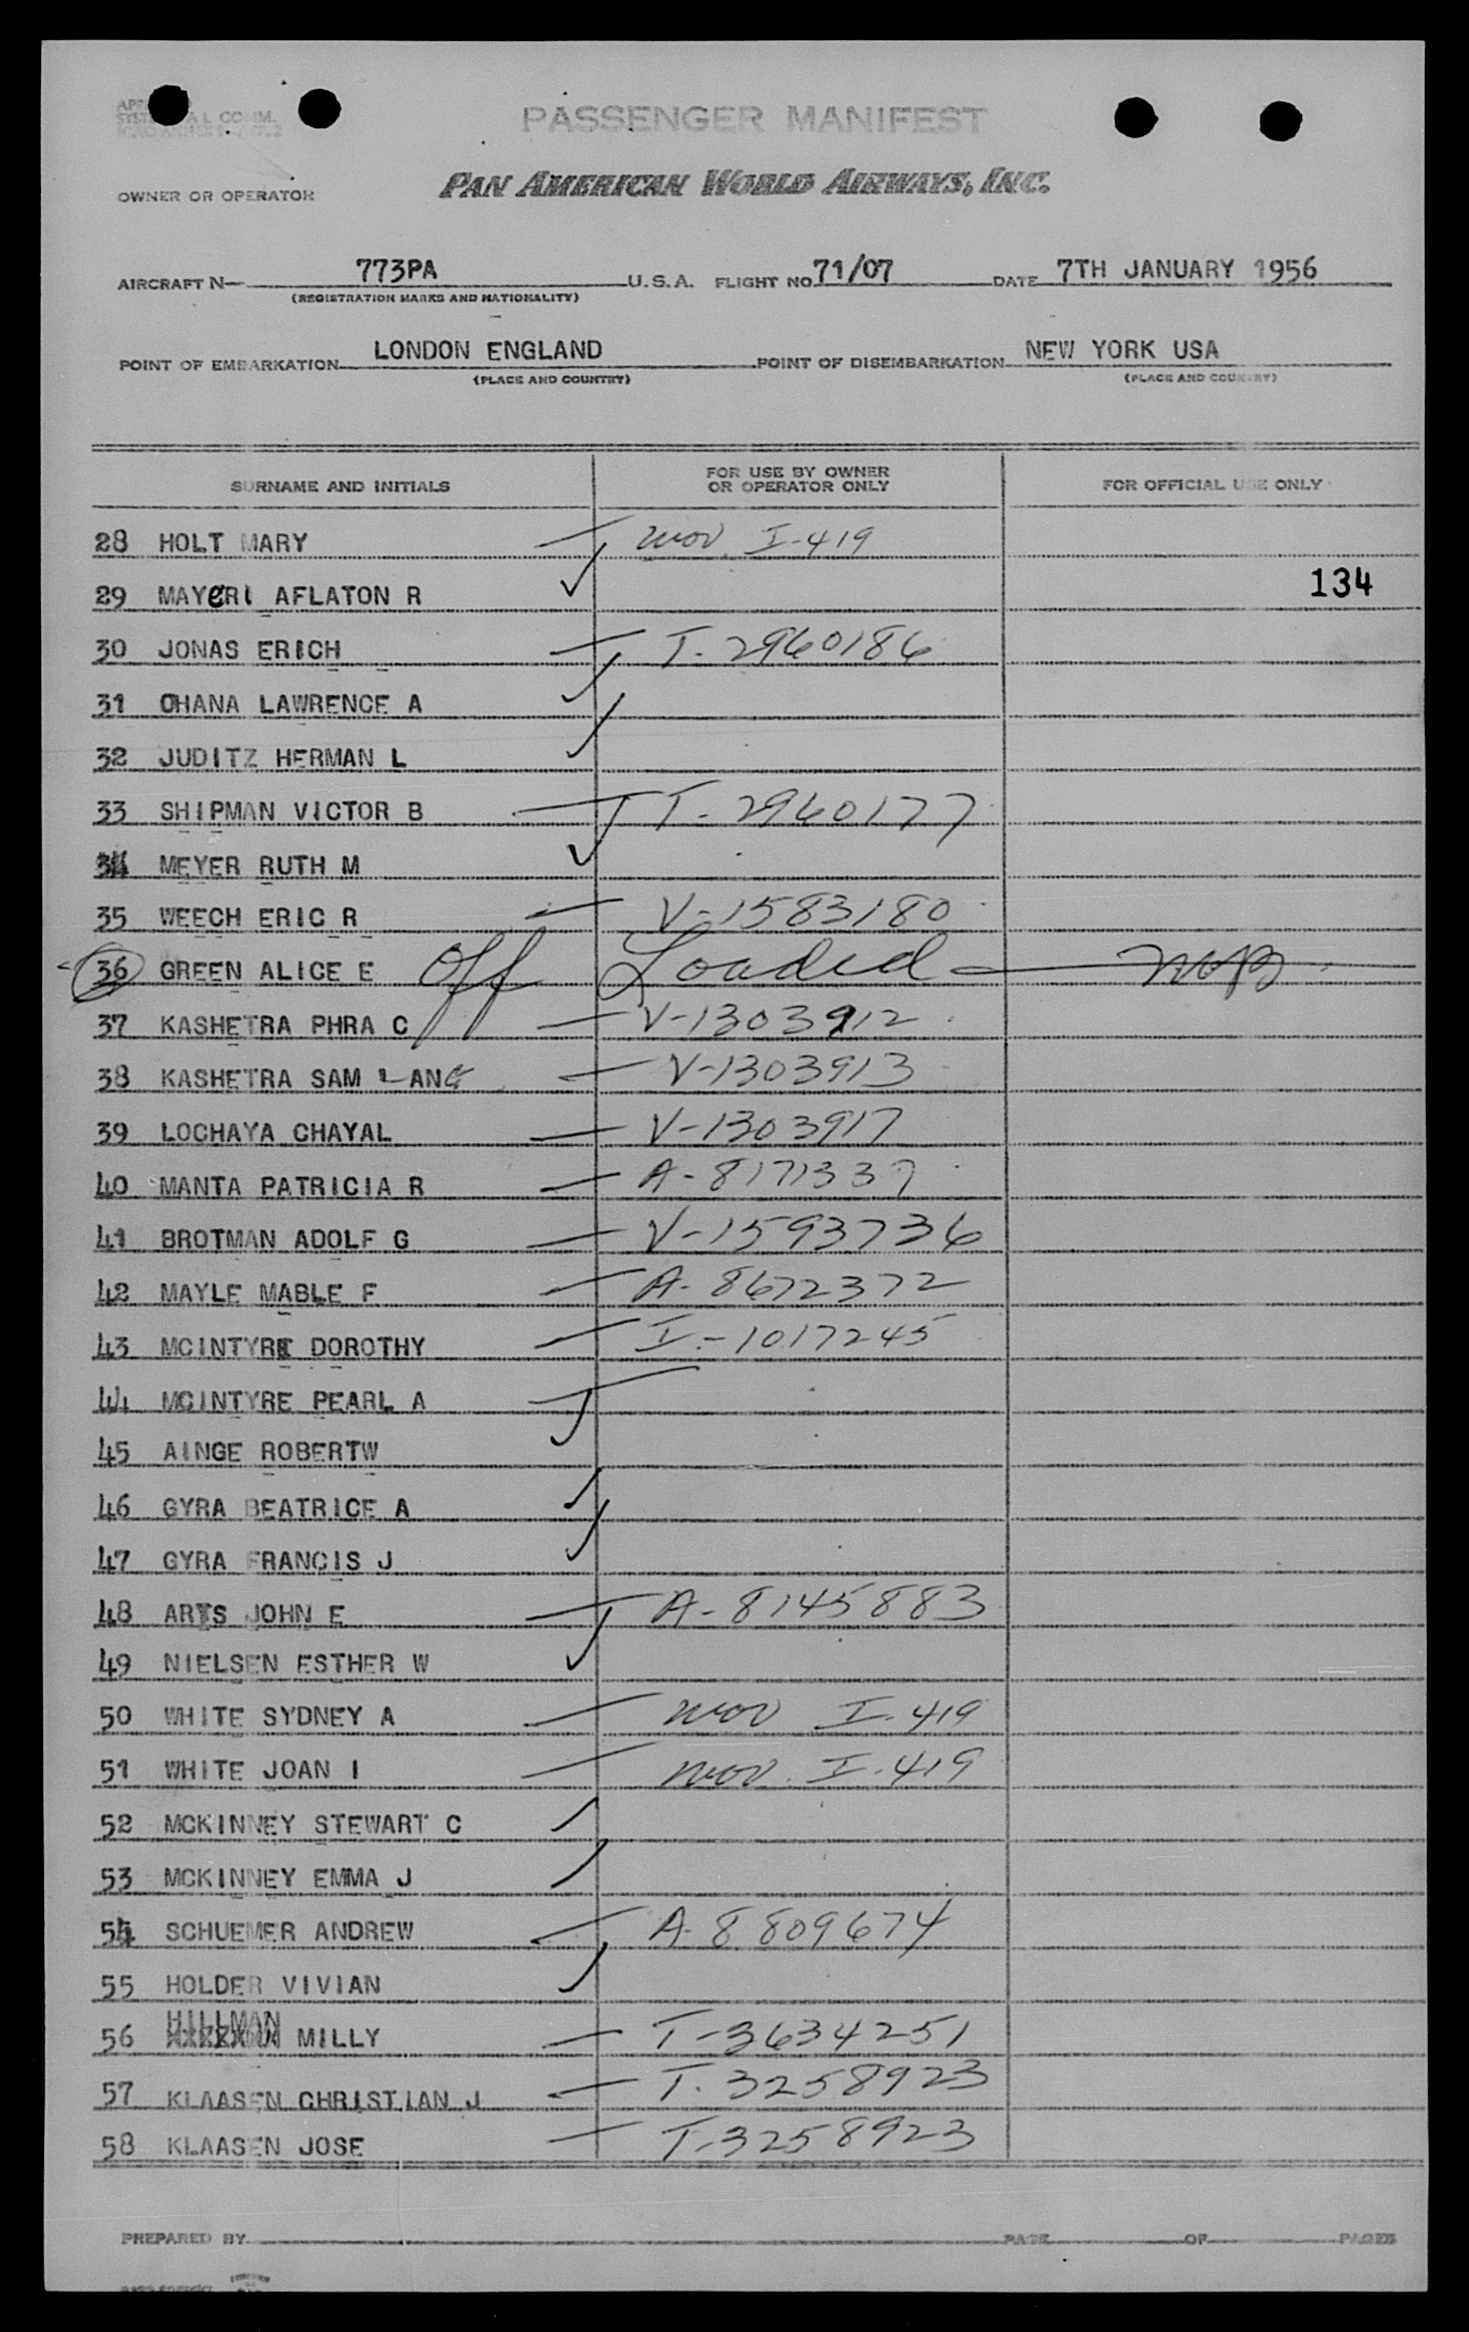 PASSENGER MANIFEST
OWNER OR OPERATOR PAN AMERICAN WORLD AIRWAYS, INC.
AIRCRAFT N 773PA U.S.A. FLIGHT NO 71/07 DATE 7TH JANUARY 1956
(REGISTRATION MARKS AND NATIONALITY)
POINT OF EMBARKATION LONDON ENGLAND POINT OF DISEMBARKATION NEW YORK USA
(PLACE AND COUNTRY) (PLACE AND COUNTRY)
SURNAME AND INITIALS FOR USE BY OWNER OR OPERATOR ONLY FOR OFFICIAL USE ONLY
28 HOLT MARY I-419
29 MAYERI AFLATON R 134
30 JONAS ERICH T-2960186
31 OHANA LAWRENCE A
32 JUDITZ HERMAN L
33 SHIPMAN VICTOR B T-2960177
34 MEYER RUTH M
35 WEECH ERIC R V-1583180
36 GREEN ALICE E Off Loaded
37 KASHETRA PHRA C V-1303912
38 KASHETRA SAM LANG V-1303913
39 LOCHAYA CHAYAL V-1303917
40 MANTA PATRICIA R A-8171337
41 BROTMAN ADOLF G V-1593736
42 MAYLE MABLE F A-8672372
43 MCINTYRE DOROTHY I-1017245
44 MCINTYRE PEARL A
45 AINGE ROBERTW
46 GYRA BEATRICE A
47 GYRA FRANCIS J
48 ARTS JOHN E A-8145883
49 NIELSEN ESTHER W
50 WHITE SYDNEY A I-419
51 WHITE JOAN I I-419
52 MCKINNEY STEWART C
53 MCKINNEY EMMA J
54 SCHUEMER ANDREW A-8809674
55 HOLDER VIVIAN
56 HILLMAN MILLY T-3634251
57 KLAASEN CHRISTIAN J T-3258923
58 KLAASEN JOSE T-3258923
PREPARED BY PAGE OF PAGES